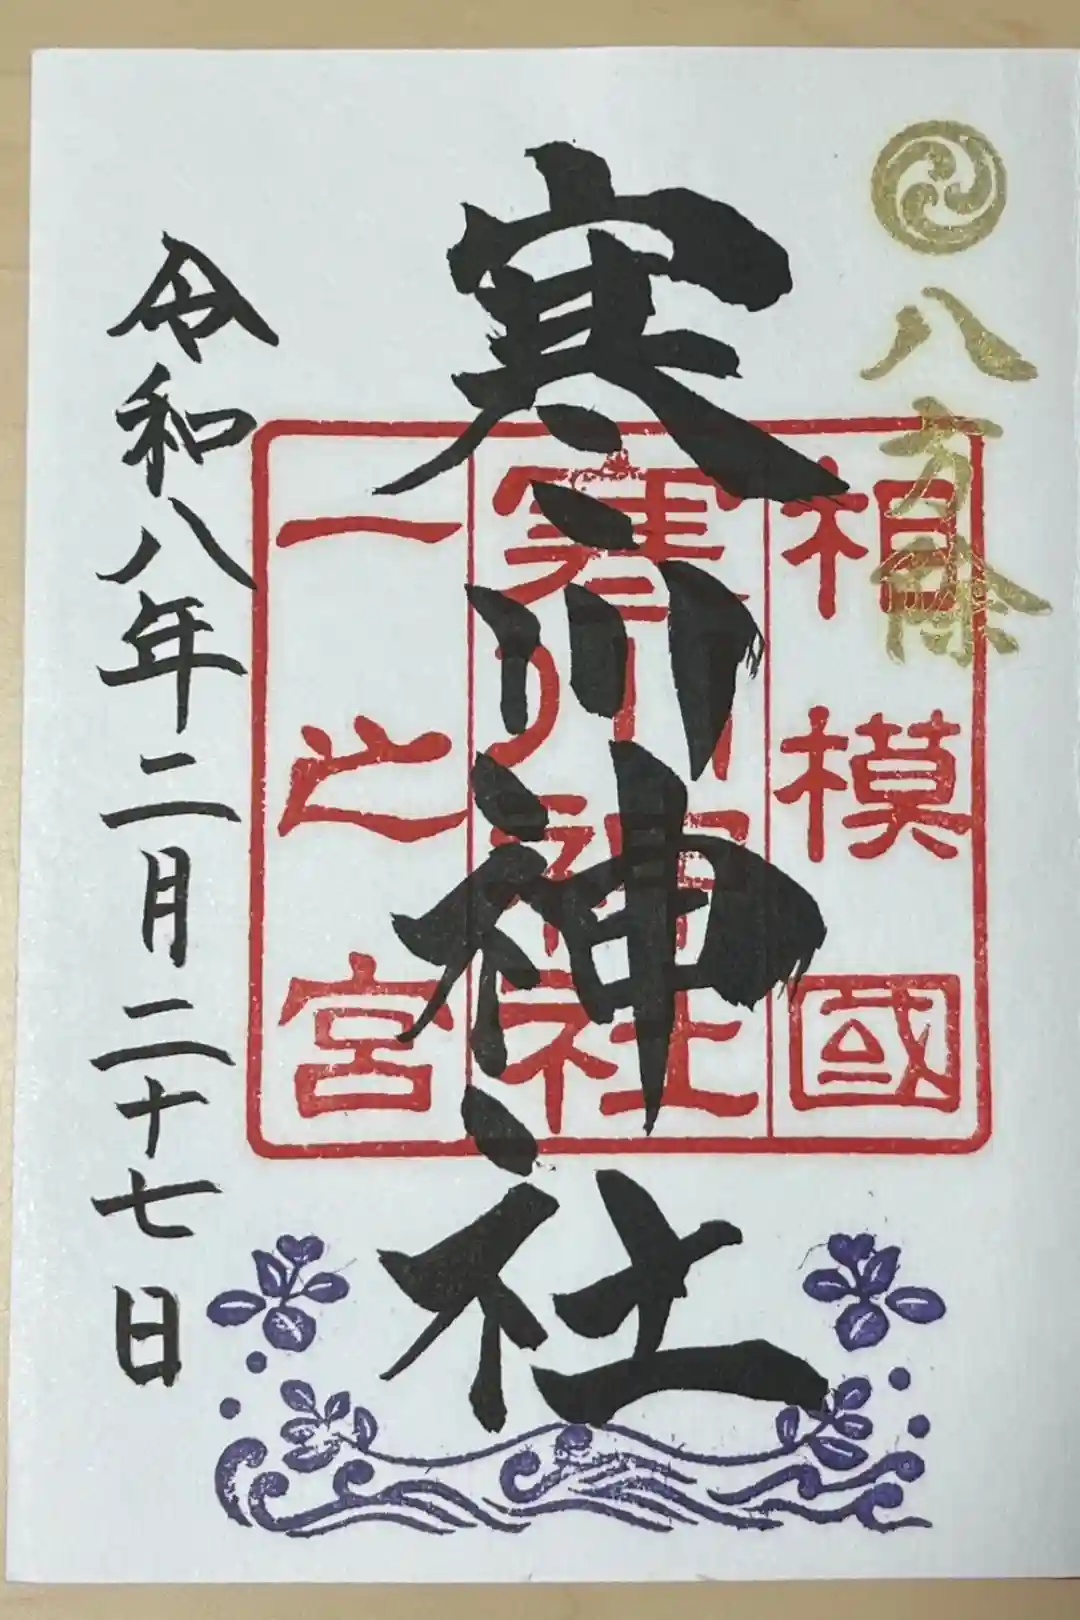 八方除
相模國
寒川神社
一之宮
寒川神社
令和八年二月二十七日